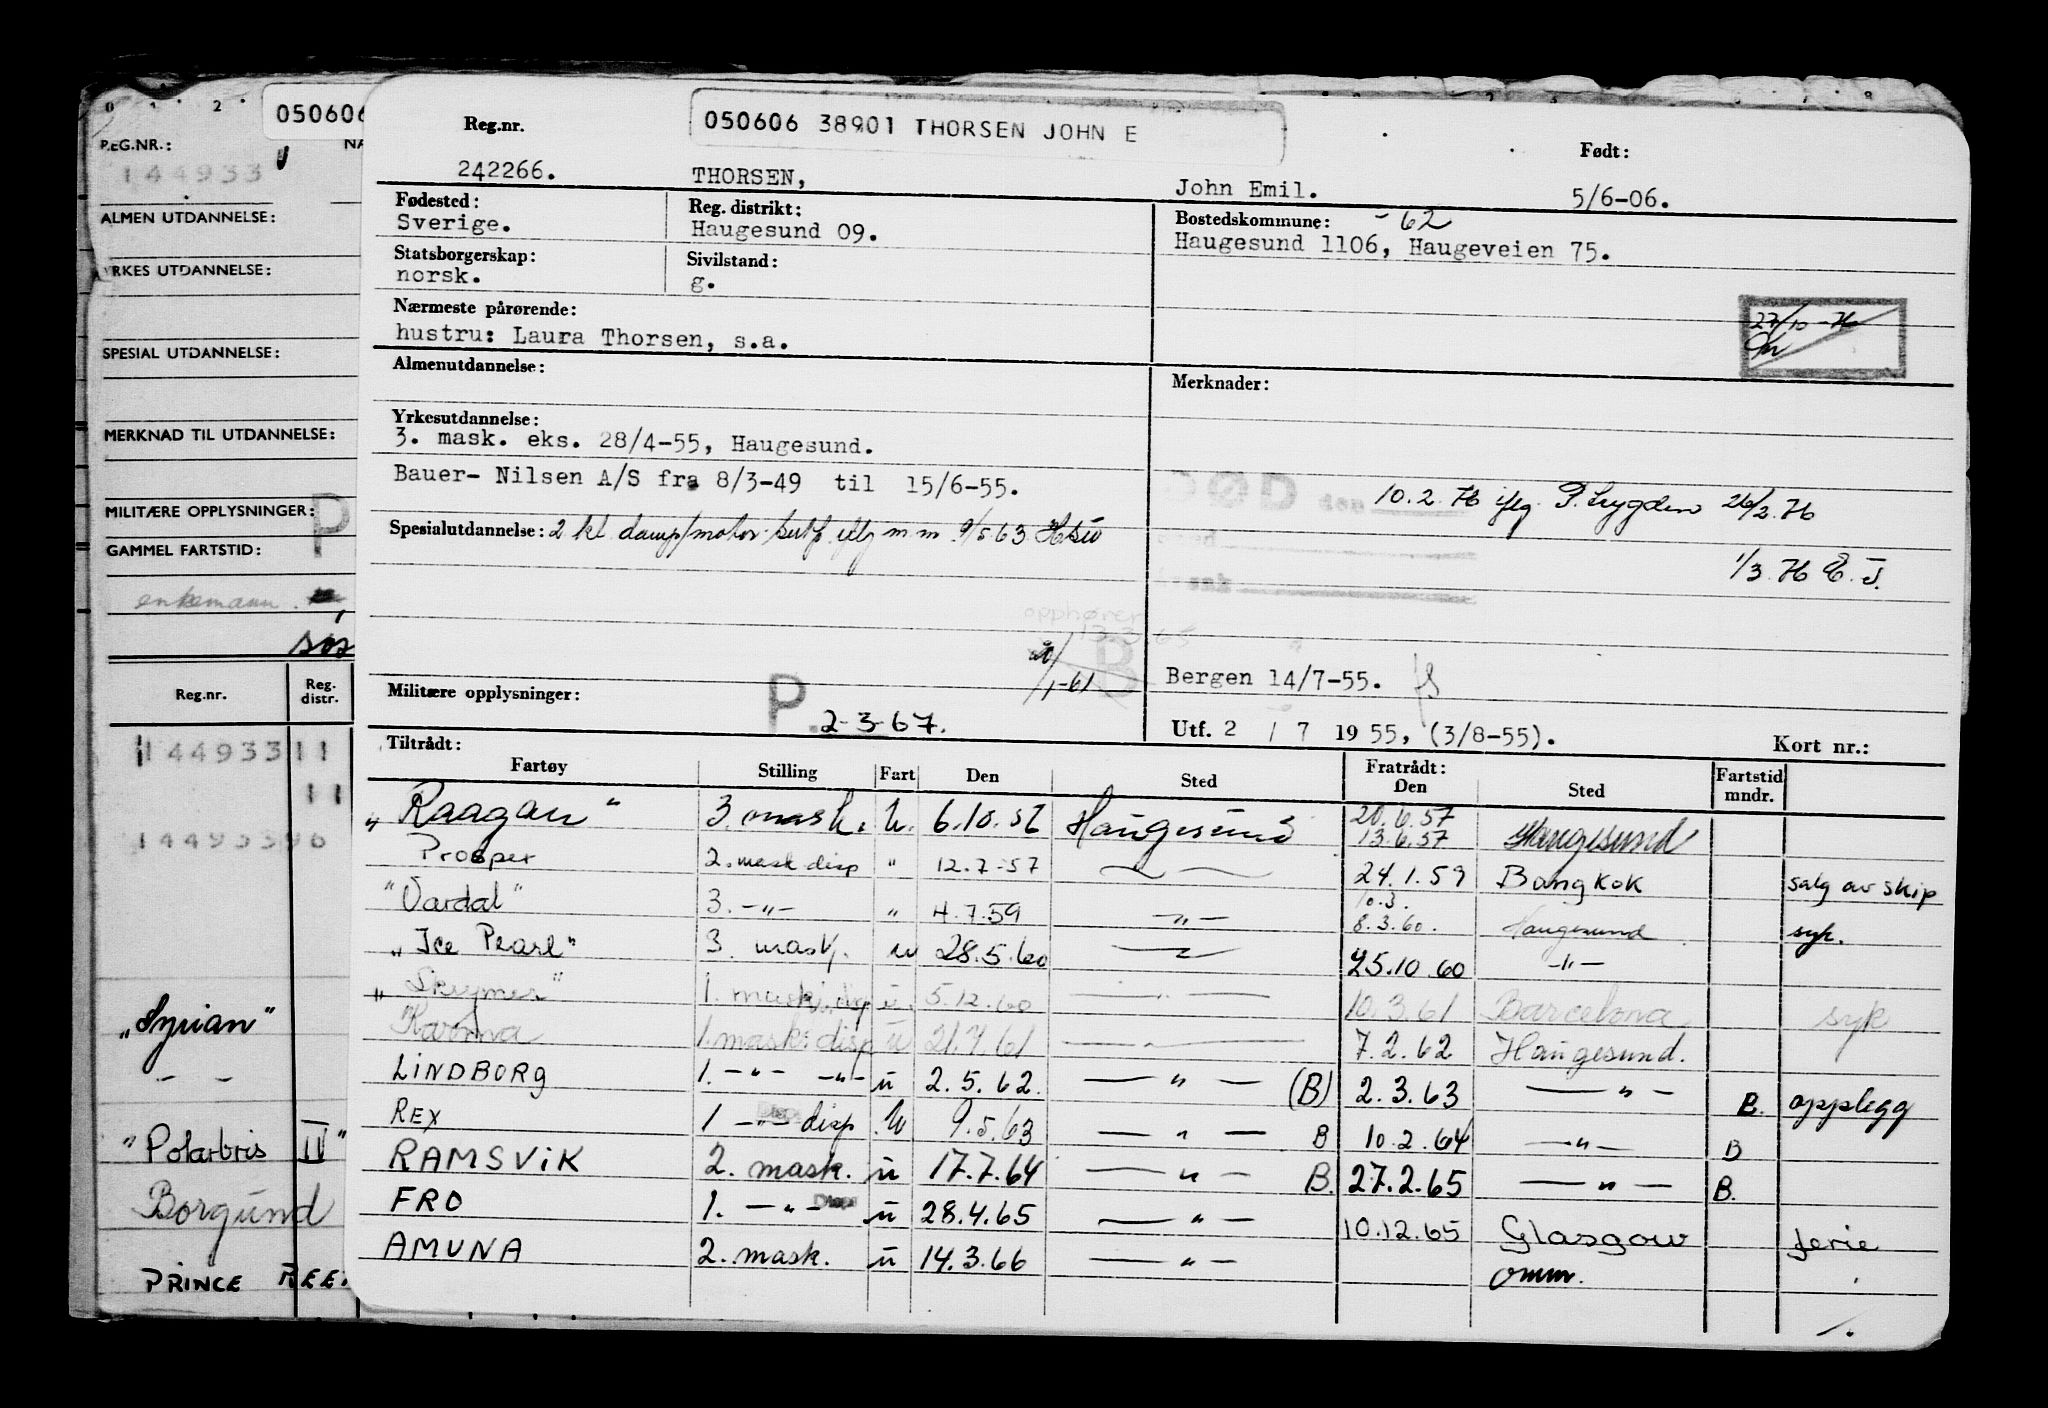 050606
REG.NR.:
NA
144933
ALMEN UTDANNELSE:
YRKES UTDANNELSE:
SPESIAL UTDANNELSE:
MERKNAD TIL UTDANNELSE:
MILITÆRE OPPLYSNINGER: P
GAMMEL FARTSTID:
enkemann
Reg.nr. Reg. distr.
144933 11
11
144933 96
„Syrian"
— —
"Polarbris IV"
Borgund
PRINCE REE
Reg.nr. 050606 38901 THORSEN JOHN E Født:
242266. THORSEN, John Emil. 5/6-06.
Fødested: Reg. distrikt: Bostedskommune: -62
Sverige. Haugesund 09. Haugesund 1106, Haugeveien 75.
Statsborgerskap: Sivilstand:
norsk. g.
Nærmeste pårørende: 27/10-76
hustru: Laura Thorsen, s.a.
Almenutdannelse: Merknader:
Yrkesutdannelse:
3. mask. eks. 28/4-55, Haugesund.
Bauer- Nilsen A/S fra 8/3-49 til 15/6-55.
DØD den 10.2.76 iflg. 26/2.76
Spesialutdannelse: 2 kl damp/motor sert. iflg m m 9/5 63 Hsu
1/3.76 E.J.
opphører
13.3.65
B
1-61 Bergen 14/7-55.
Militære opplysninger: P. 2-3-67.
Utf. 2 / 7 1955, (3/8-55). Kort nr.:
Tiltrådt: Fratrådt:
Fartøy Stilling Fart Den Sted Den Sted Fartstid mndr.
„Raagan" 3. mask. u. 6.10.56 Haugesund 20.6.57
13.6.57 Haugesund
Prosper 2. mask disp " 12.7-57 —"— 24.1.59 Bangkok salg av skip
"Vardal" 3. -"- " 4.7.59 -"- 10.3.
8.3.60. Haugesund syk.
„Ice Pearl" 3. mask. u 28.5.60 —"— 25.10.60 -"-
„Skrymer" 1. mask. disp u. 5.12.60 —"— 10.3.61 Barcelona syk
Karmva 1. mask. disp u 21.4.61 —"— 7.2.62 Haugesund.
LINDBORG 1. -"- -"- u 2.5.62. —"— (B) 2.3.63 —"— B. opplegg
REX 1 -"- disp u 9.5.63 —"— B 10.2.64 —"— B
RAMSVIK 2. mask. u 17.7.64 —"— B. 27.2.65 —"— B.
FRO 1. -"- Disp u 28.4.65 —"— 10.12.65 Glasgow ferie
AMUNA 2. mask. u 14.3.66 —"— omm.